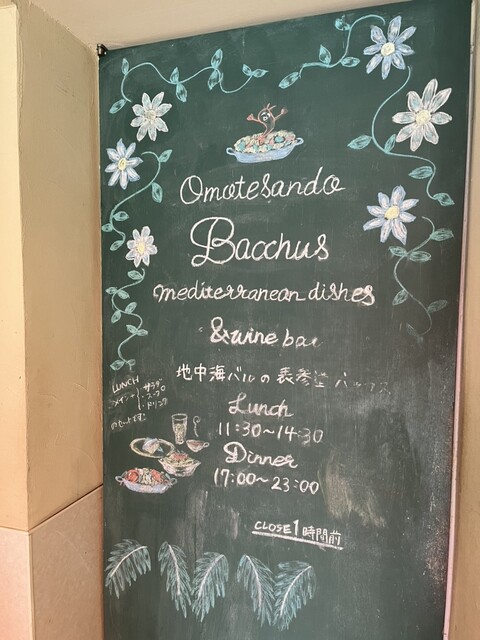 Omotesando
Bacchus
mediterranean dishes
& wine bar
地中海バルの表参道バッカス
LUNCH
メイン+・サラダ
・スープ
・ドリンク
のセットです!
Lunch
11:30~14:30
Dinner
17:00~23:00
CLOSE 1時間前